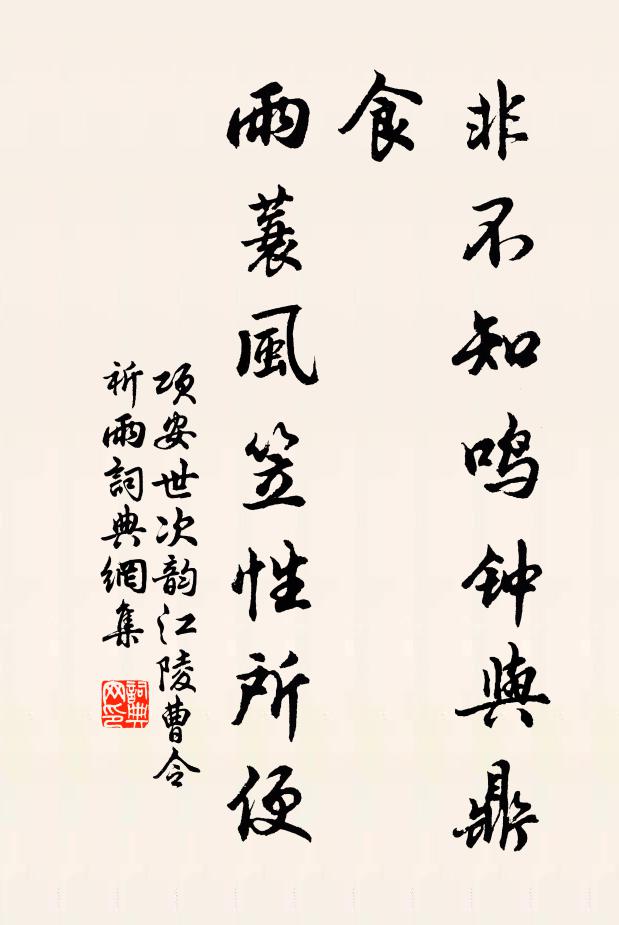 非不知鸣钟與鼎
食
雨蓑風笠性所便
项安世次韵江陵曹令
祈雨詞典網集
詞典网印